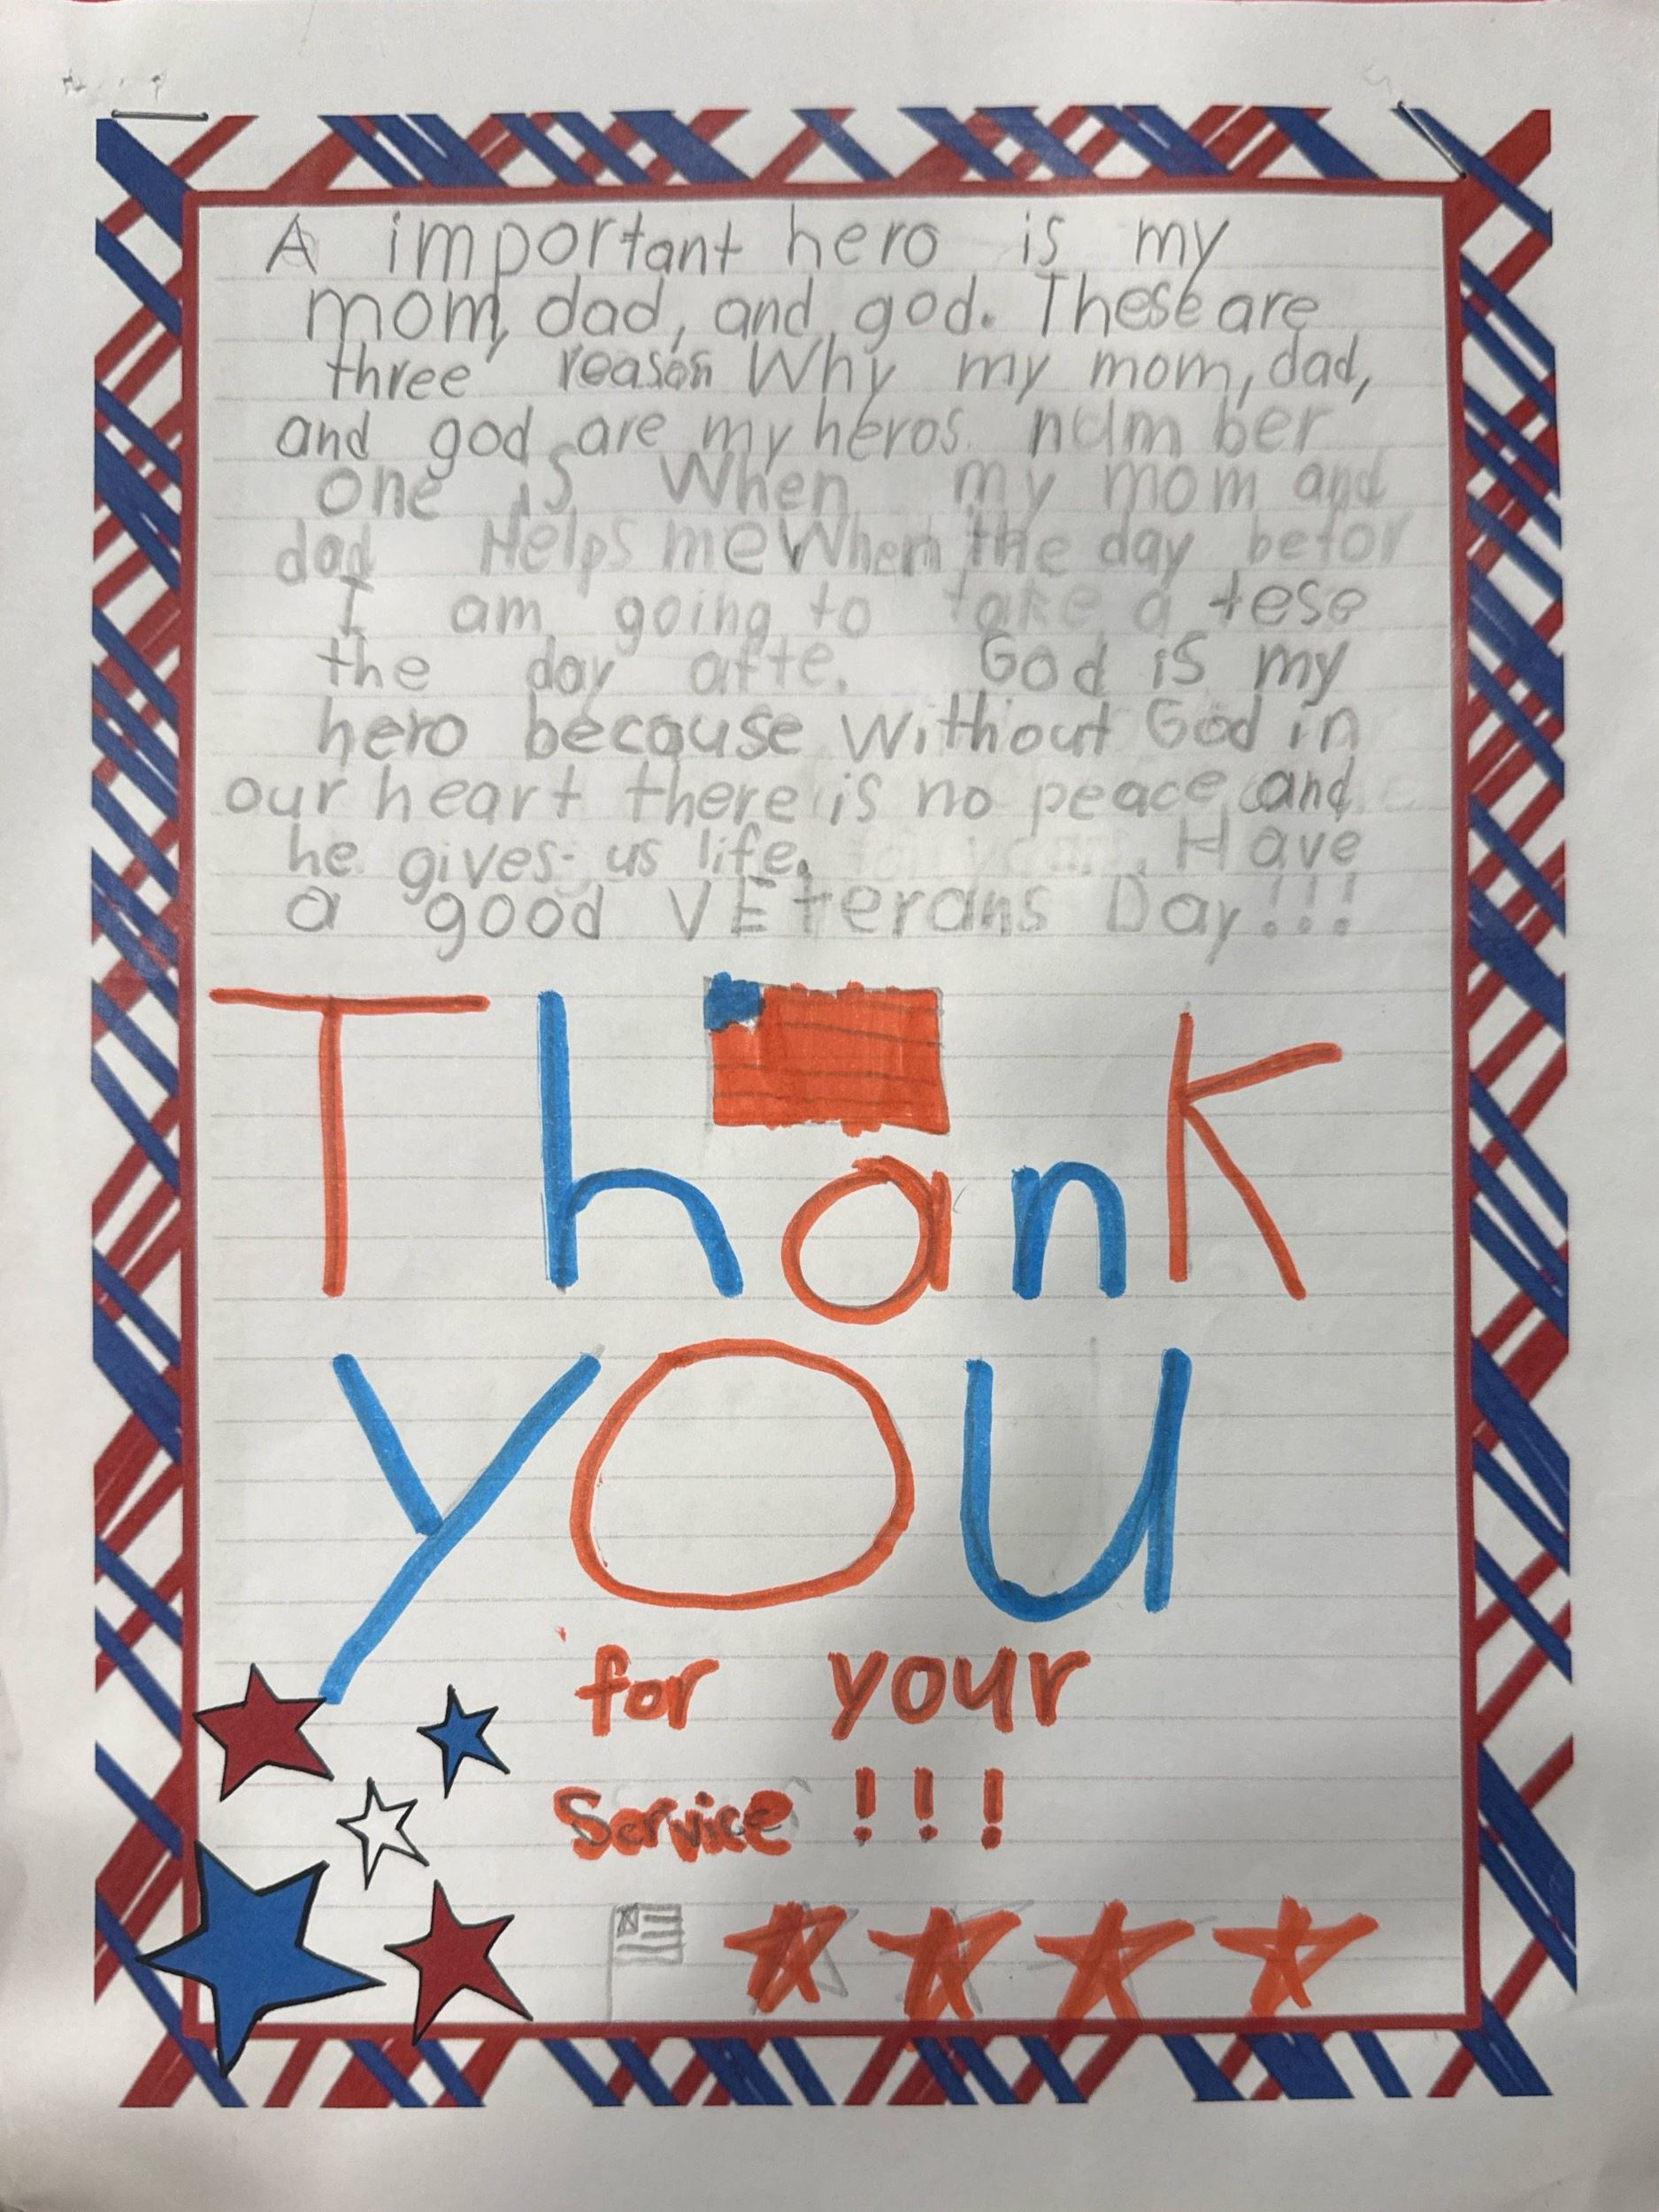 A important hero is my
mom, dad, and god. These are
three reason Why my mom, dad,
and god are my heros. number
one is When my mom and
dad Helps me When the day befor
I am going to take a tese
the day afte. God is my
hero because Without God in
our heart there is no peace and
he gives us life. Have
a good VEterans Day!!!
Thank
you
for your
Service !!!